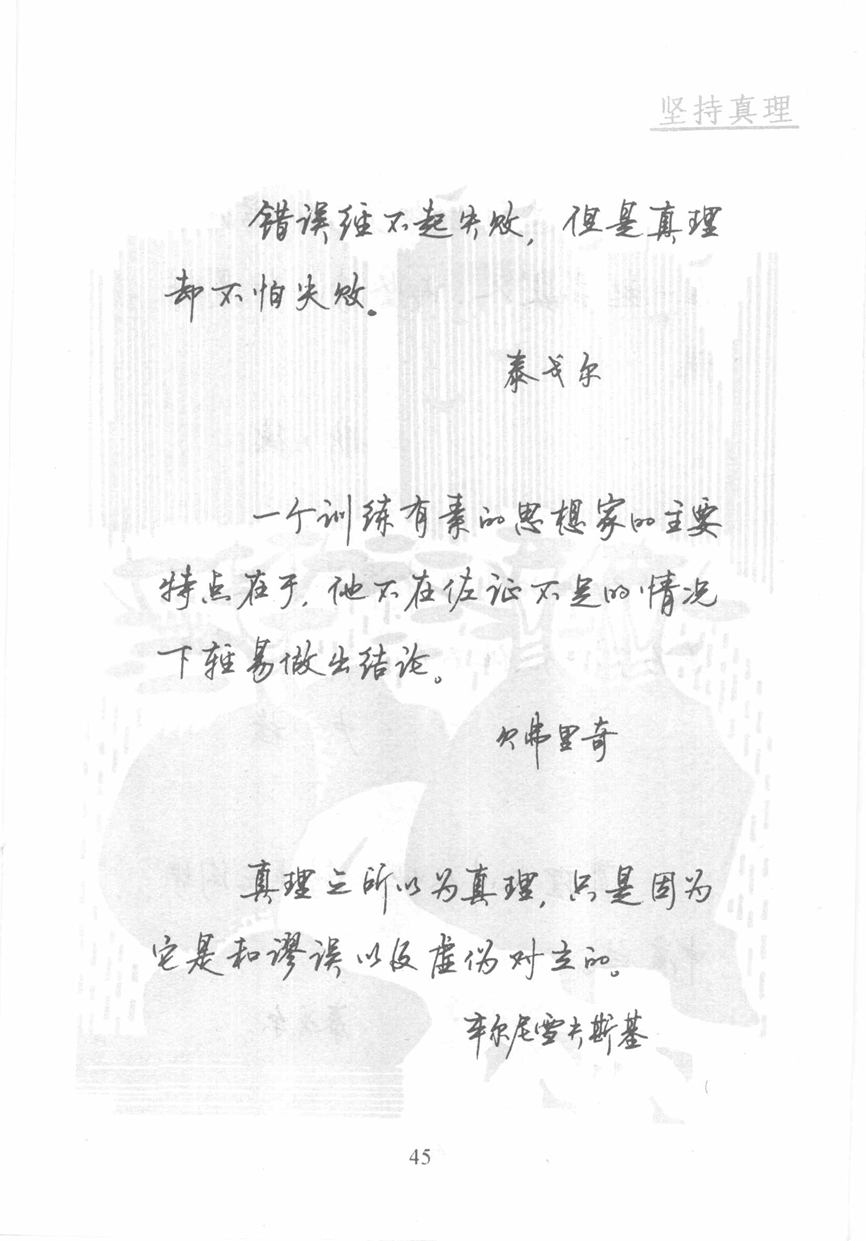 坚持真理
错误经不起失败，但是真理
却不怕失败。
泰戈尔
一个训练有素的思想家的主要
特点在于，他不在佐证不足的情况
下轻易做出结论。
贝弗里奇
真理之所以为真理，只是因为
它是和谬误以及虚伪对立的。
车尔尼雪夫斯基
45